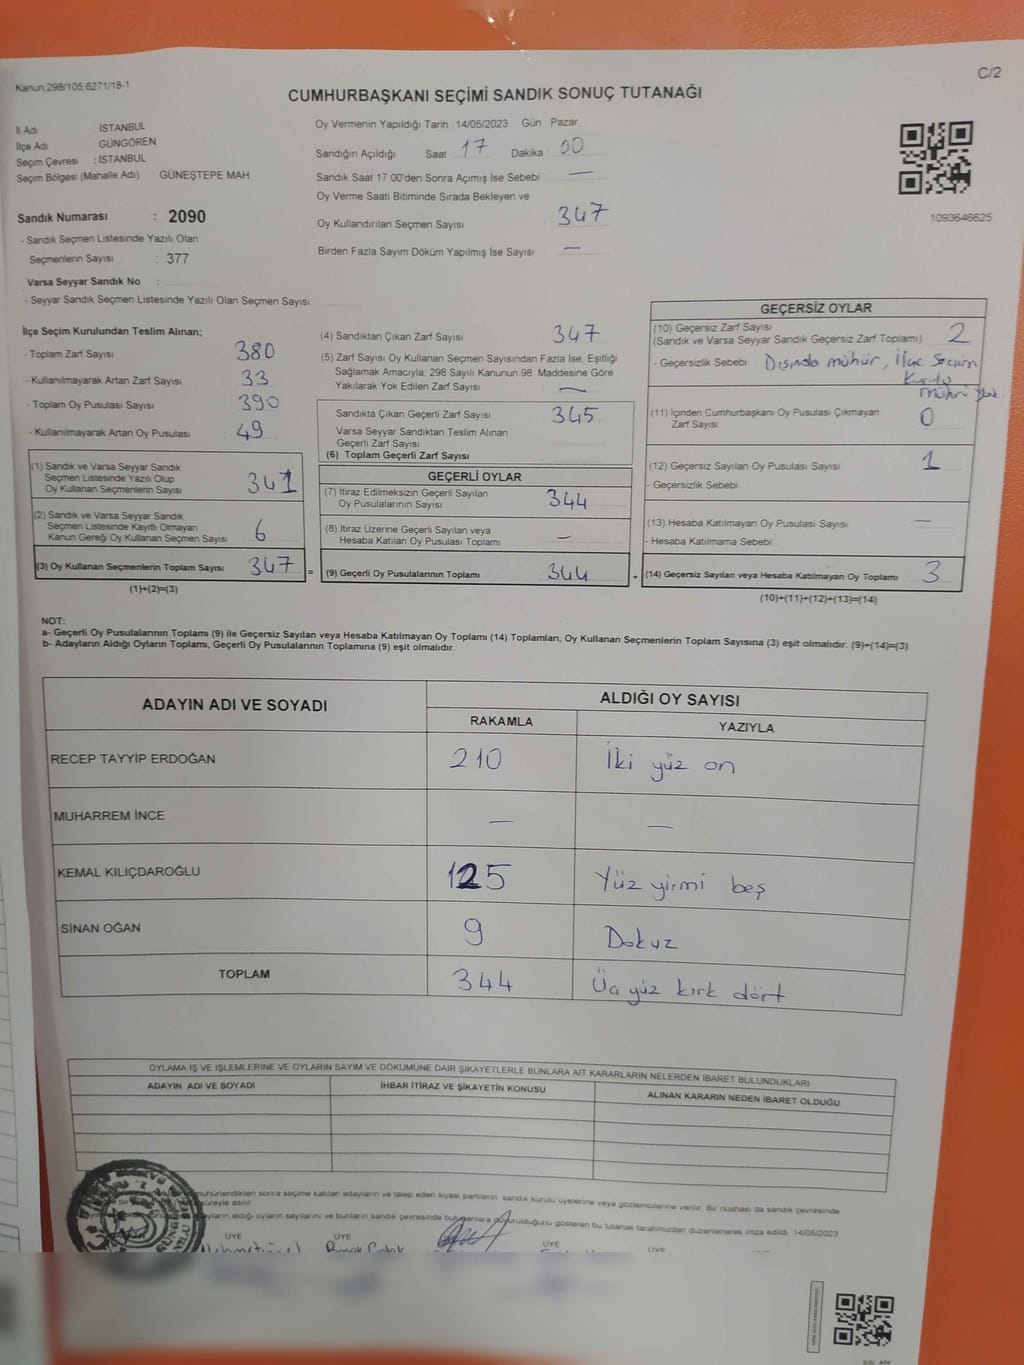 C/2
Kanun:298/105;6271/18-1
CUMHURBAŞKANI SEÇİMİ SANDIK SONUÇ TUTANAĞI
İl Adı İSTANBUL
İlçe Adı GÜNGÖREN
Seçim Çevresi : İSTANBUL
Seçim Bölgesi (Mahalle Adı) GÜNEŞTEPE MAH.
Sandık Numarası : 2090
- Sandık Seçmen Listesinde Yazılı Olan
Seçmenlerin Sayısı : 377
Varsa Seyyar Sandık No :
- Seyyar Sandık Seçmen Listesinde Yazılı Olan Seçmen Sayısı:
Oy Vermenin Yapıldığı Tarih 14/05/2023 Gün Pazar
Sandığın Açıldığı Saat 17 Dakika 00
Sandık Saat 17:00'den Sonra Açımış İse Sebebi —
Oy Verme Saati Bitiminde Sırada Bekleyen ve
Oy Kullandırılan Seçmen Sayısı 347
Birden Fazla Sayım Döküm Yapılmış İse Sayısı —
1093646625
İlçe Seçim Kurulundan Teslim Alınan;
- Toplam Zarf Sayısı 380
- Kullanılmayarak Artan Zarf Sayısı 33
- Toplam Oy Pusulası Sayısı 390
- Kullanılmayarak Artan Oy Pusulası 49
(1) Sandık ve Varsa Seyyar Sandık
Seçmen Listesinde Yazılı Olup
Oy Kullanan Seçmenlerin Sayısı 341
(2) Sandık ve Varsa Seyyar Sandık
Seçmen Listesinde Kayıtlı Olmayan
Kanun Gereği Oy Kullanan Seçmen Sayısı 6
(3) Oy Kullanan Seçmenlerin Toplam Sayısı 347 =
(1)+(2)=(3)
(4) Sandıktan Çıkan Zarf Sayısı 347
(5) Zarf Sayısı Oy Kullanan Seçmen Sayısından Fazla İse, Eşitliği
Sağlamak Amacıyla; 298 Sayılı Kanunun 98. Maddesine Göre
Yakılarak Yok Edilen Zarf Sayısı —
Sandıkta Çıkan Geçerli Zarf Sayısı 345
Varsa Seyyar Sandıktan Teslim Alınan
Geçerli Zarf Sayısı
(6) Toplam Geçerli Zarf Sayısı
GEÇERLİ OYLAR
(7) İtiraz Edilmeksizin Geçerli Sayılan
Oy Pusulalarının Sayısı 344
(8) İtiraz Üzerine Geçerli Sayılan veya
Hesaba Katılan Oy Pusulası Toplamı —
(9) Geçerli Oy Pusulalarının Toplamı 344 +
GEÇERSİZ OYLAR
(10) Geçersiz Zarf Sayısı
(Sandık ve Varsa Seyyar Sandık Geçersiz Zarf Toplamı) 2
- Geçersizlik Sebebi Dışında mühür, İlçe Seçim
Kurulu
mührü yok
(11) İçinden Cumhurbaşkanı Oy Pusulası Çıkmayan
Zarf Sayısı 0
(12) Geçersiz Sayılan Oy Pusulası Sayısı 1
- Geçersizlik Sebebi
(13) Hesaba Katılmayan Oy Pusulası Sayısı —
- Hesaba Katılmama Sebebi
(14) Geçersiz Sayılan veya Hesaba Katılmayan Oy Toplamı 3
(10)+(11)+(12)+(13)=(14)
NOT:
a- Geçerli Oy Pusulalarının Toplamı (9) ile Geçersiz Sayılan veya Hesaba Katılmayan Oy Toplamı (14) Toplamları, Oy Kullanan Seçmenlerin Toplam Sayısına (3) eşit olmalıdır. (9)+(14)=(3)
b- Adayların Aldığı Oyların Toplamı, Geçerli Oy Pusulalarının Toplamına (9) eşit olmalıdır.
ADAYIN ADI VE SOYADI ALDIĞI OY SAYISI
RAKAMLA YAZIYLA
RECEP TAYYİP ERDOĞAN 210 İki yüz on
MUHARREM İNCE — —
KEMAL KILIÇDAROĞLU 125 Yüz yirmi beş
SİNAN OĞAN 9 Dokuz
TOPLAM 344 Üç yüz kırk dört
OYLAMA İŞ VE İŞLEMLERİNE VE OYLARIN SAYIM VE DÖKÜMÜNE DAİR ŞİKAYETLERLE BUNLARA AİT KARARLARIN NELERDEN İBARET BULUNDUKLARI
ADAYIN ADI VE SOYADI İHBAR İTİRAZ VE ŞİKAYETİN KONUSU ALINAN KARARIN NEDEN İBARET OLDUĞU
mühürlendikten sonra seçime katılan adayların ve talep eden siyasi partilerin sandık kurulu üyelerine veya gözlemcilerine verilir. Bir nüshası da sandık çevresinde
süreyle asılır.
aldığı oyların sayılarını ve bunların sandık çevresinde bulunanlara duyurulduğunu gösteren bu tutanak tarafımızdan düzenlenerek imza edildi. 14/05/2023
ÜYE ÜYE ÜYE ÜYE